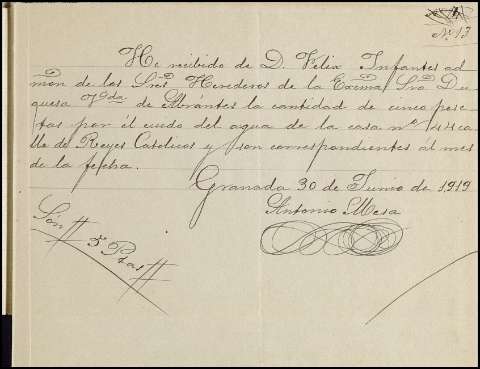 Nº 13
He recibido de D. Felix Infantes ad
mon de los Sres Herederos de la Excma Sra Du
quesa de Abrantes la cantidad de cinco pese
tas por el cuido del agua de la casa nº 44 ca
lle de Reyes Catolicos y son correspondientes al mes
de la fecha.
Granada 30 de Junio de 1919
Antonio Mesa
Son # 5 Ptas #